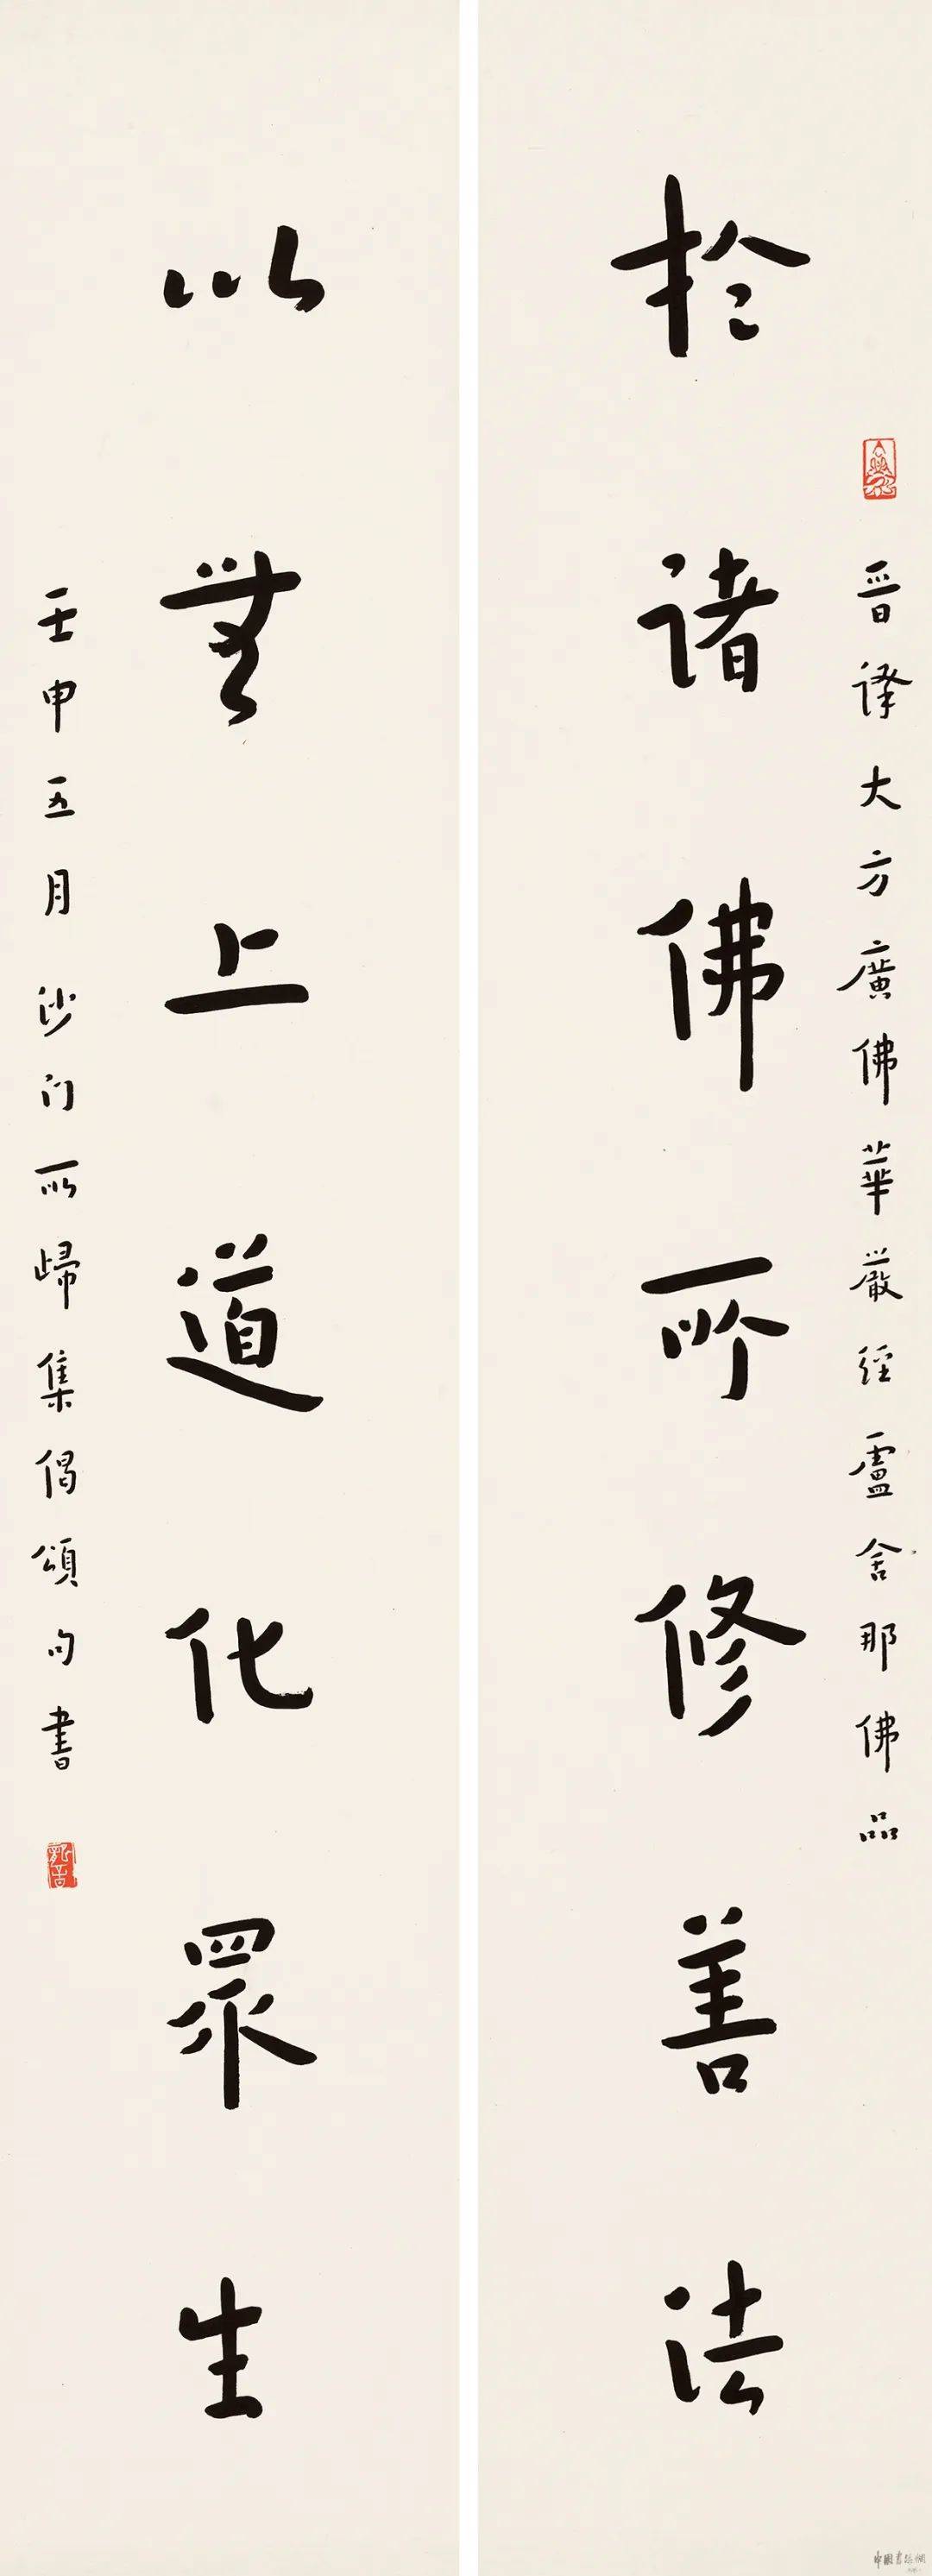 於諸佛所修善法
晉譯大方廣佛華嚴經盧舍那佛品
以無上道化眾生
壬申五月沙门所歸集偈頌句書